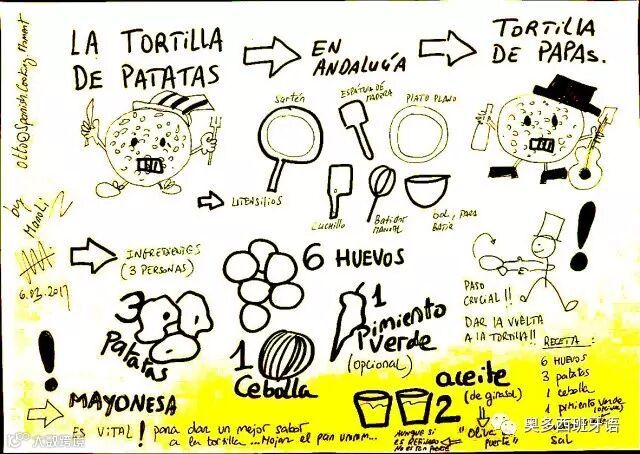 LA TORTILLA
DE PATATAS
EN
ANDALUCÍA
TORTILLA
DE PAPAS.
Otto@Spanish Cooking Moment
by
Manoli
6.03.2017
Sartén
ESPÁTULA DE
MADERA
PLATO PLANO
UTENSILIOS
CUCHILLO
Batidor
manual
bol, PARA
BATIR
INGREDIENTES
(3 PERSONAS)
6 HUEVOS
3
Patatas
1
Cebolla
1
Pimiento
Verde
(opcional)
PASO
CRUCIAL!!
DAR LA VUELTA
A LA TORTILLA!!
RECETA:
6 HUEVOS
3 patatas
1 cebolla
1 pimiento verde
sal
MAYONESA
ES VITAL! para dar un mejor sabor
a la tortilla... Mojar el pan ummm...
2
aceite
(de girasol)
AUNQUE SI
ES REFINADO
"Oliva
fuerte"
奥多西班牙语
大数跨境